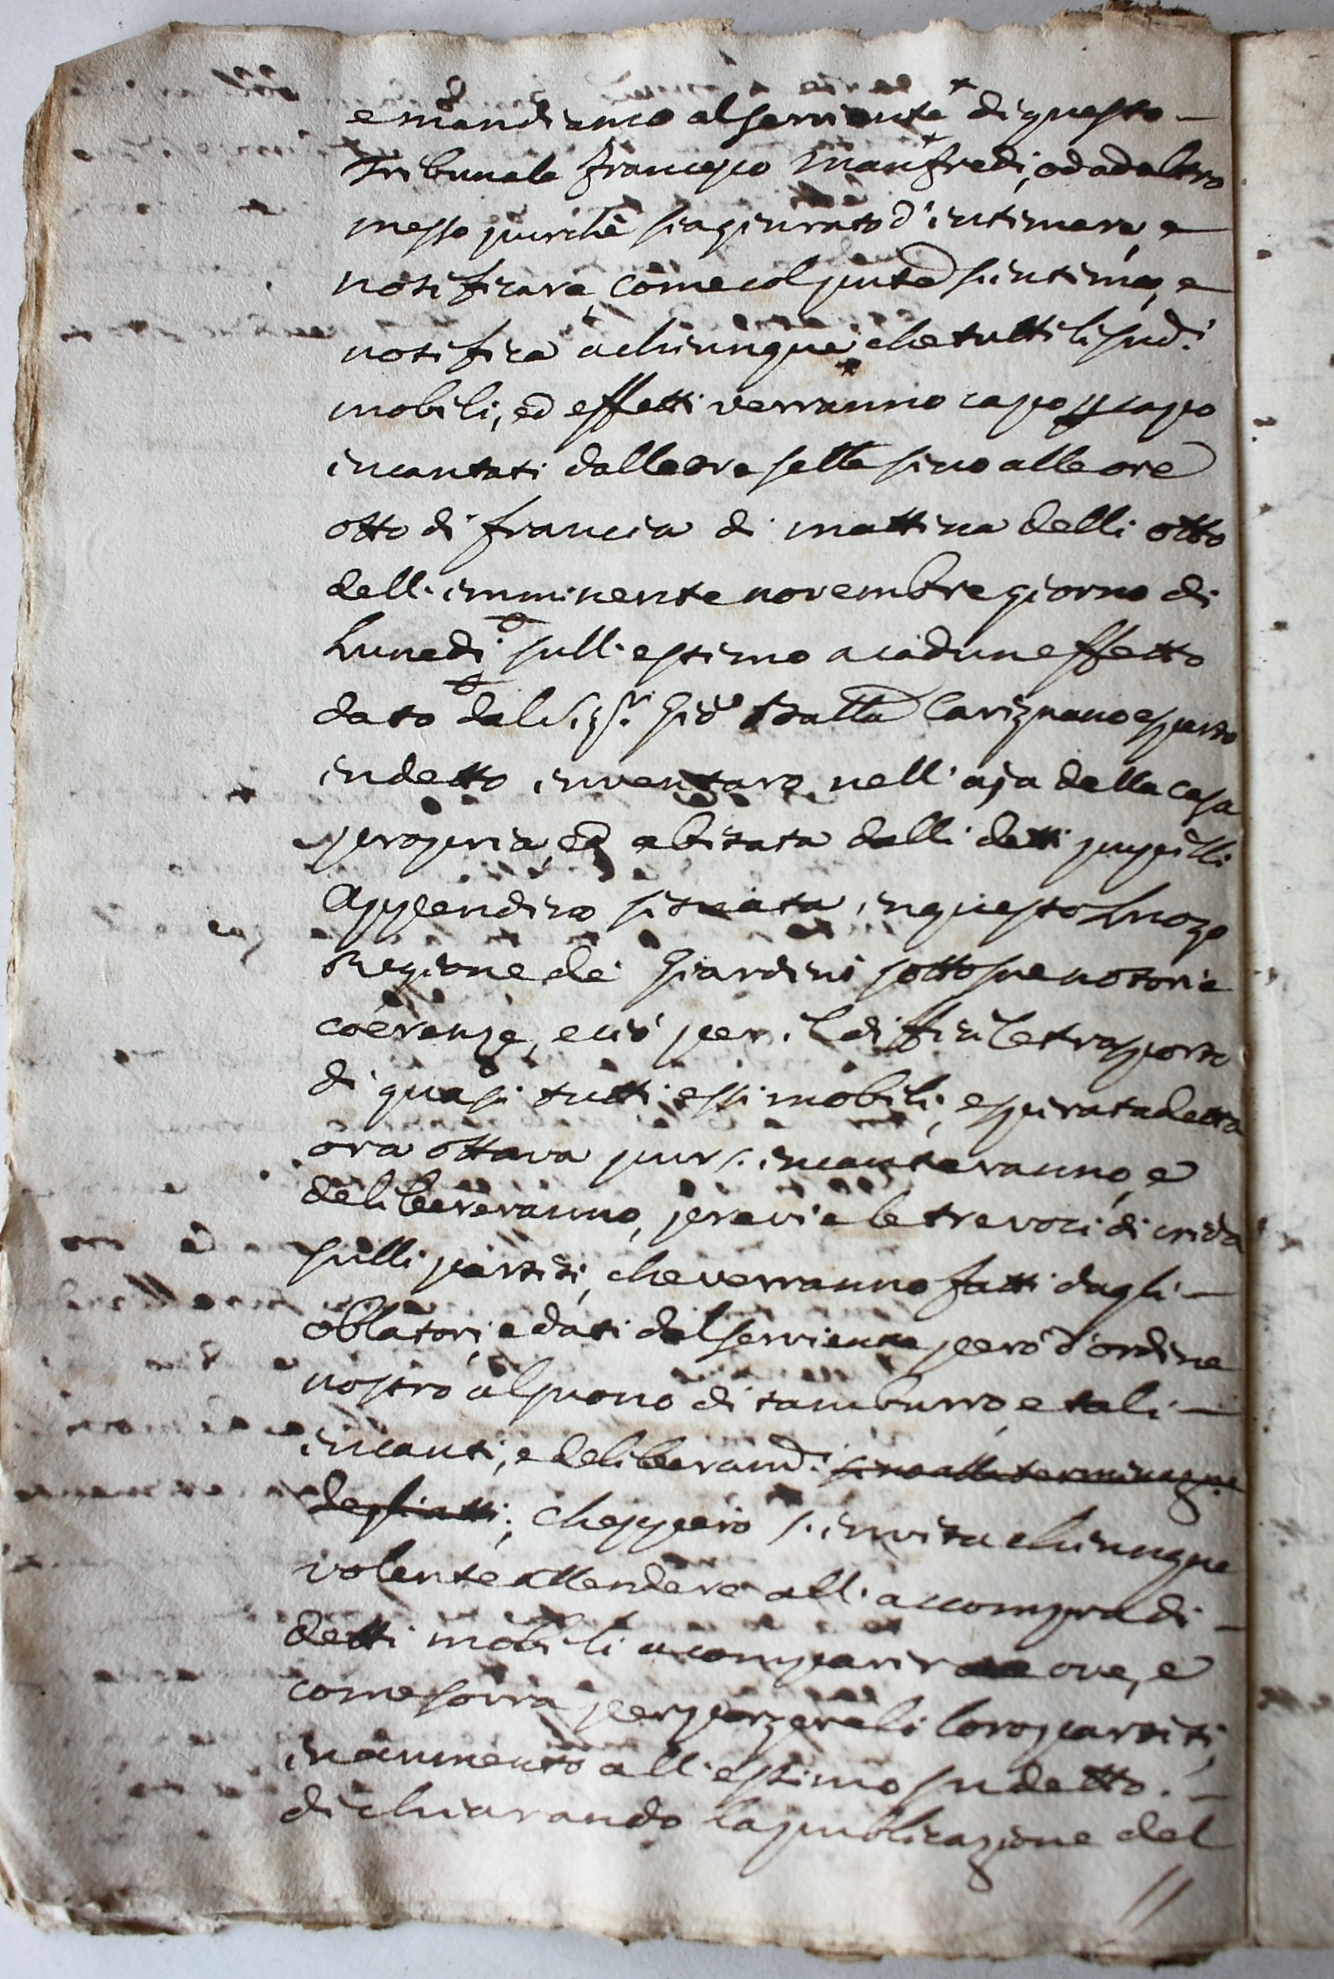 e mandiamo al serviente di questo —
Tribunale Francesco Manfredi, od ad altro
messo purche sia giurato d'intimare, e
notificare, come col pnte si intima, e
notifica a chiunque che tutti li sudi
mobili, ed effetti verranno capo p capo
incantati dalle ore sette sino alle ore
otto di francia di mattina delli otto
dell'imminente novembre giorno di
Lunedi sull'estimo a cadun effetto
dato dal Sigr. Gio Batta Carignano esperto
in detto inventaro, nell'aja della casa
propria, ed abitata dalli detti pupilli
Appendino situata in questo Luogo
Regione de' Giardini sotto sue notorie
coerenze, e ciò per il difficile trasporto
di quasi tutti essi mobili, e spirata detta
ora ottava pur s'incanteranno, e
delibereranno, previe le tre voci di crida
sulli partiti, che verranno fatti dagli —
oblatori, e dati dal serviente però d'ordine
nostro al suono di tamburro, e tali —
incanti, e deliberandi sino alla terminazne
degli atti; cheppero s'invita chiunque
volente attendere all'accompra di —
detti mobili a comparire ove, e
come sovra per porgere li loro partiti,
in aumento all'estimo sudetto. —
dichiarando la publicazione del